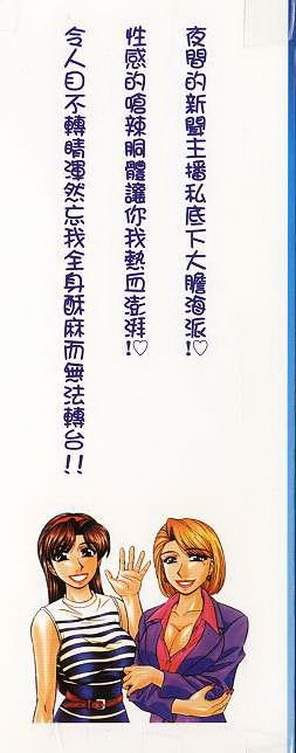 夜間的新聞主播私底下大膽海派!♡
性感的嗆辣胴體讓你我熱血澎湃!♡
令人目不轉睛渾然忘我全身酥麻而無法轉台!!